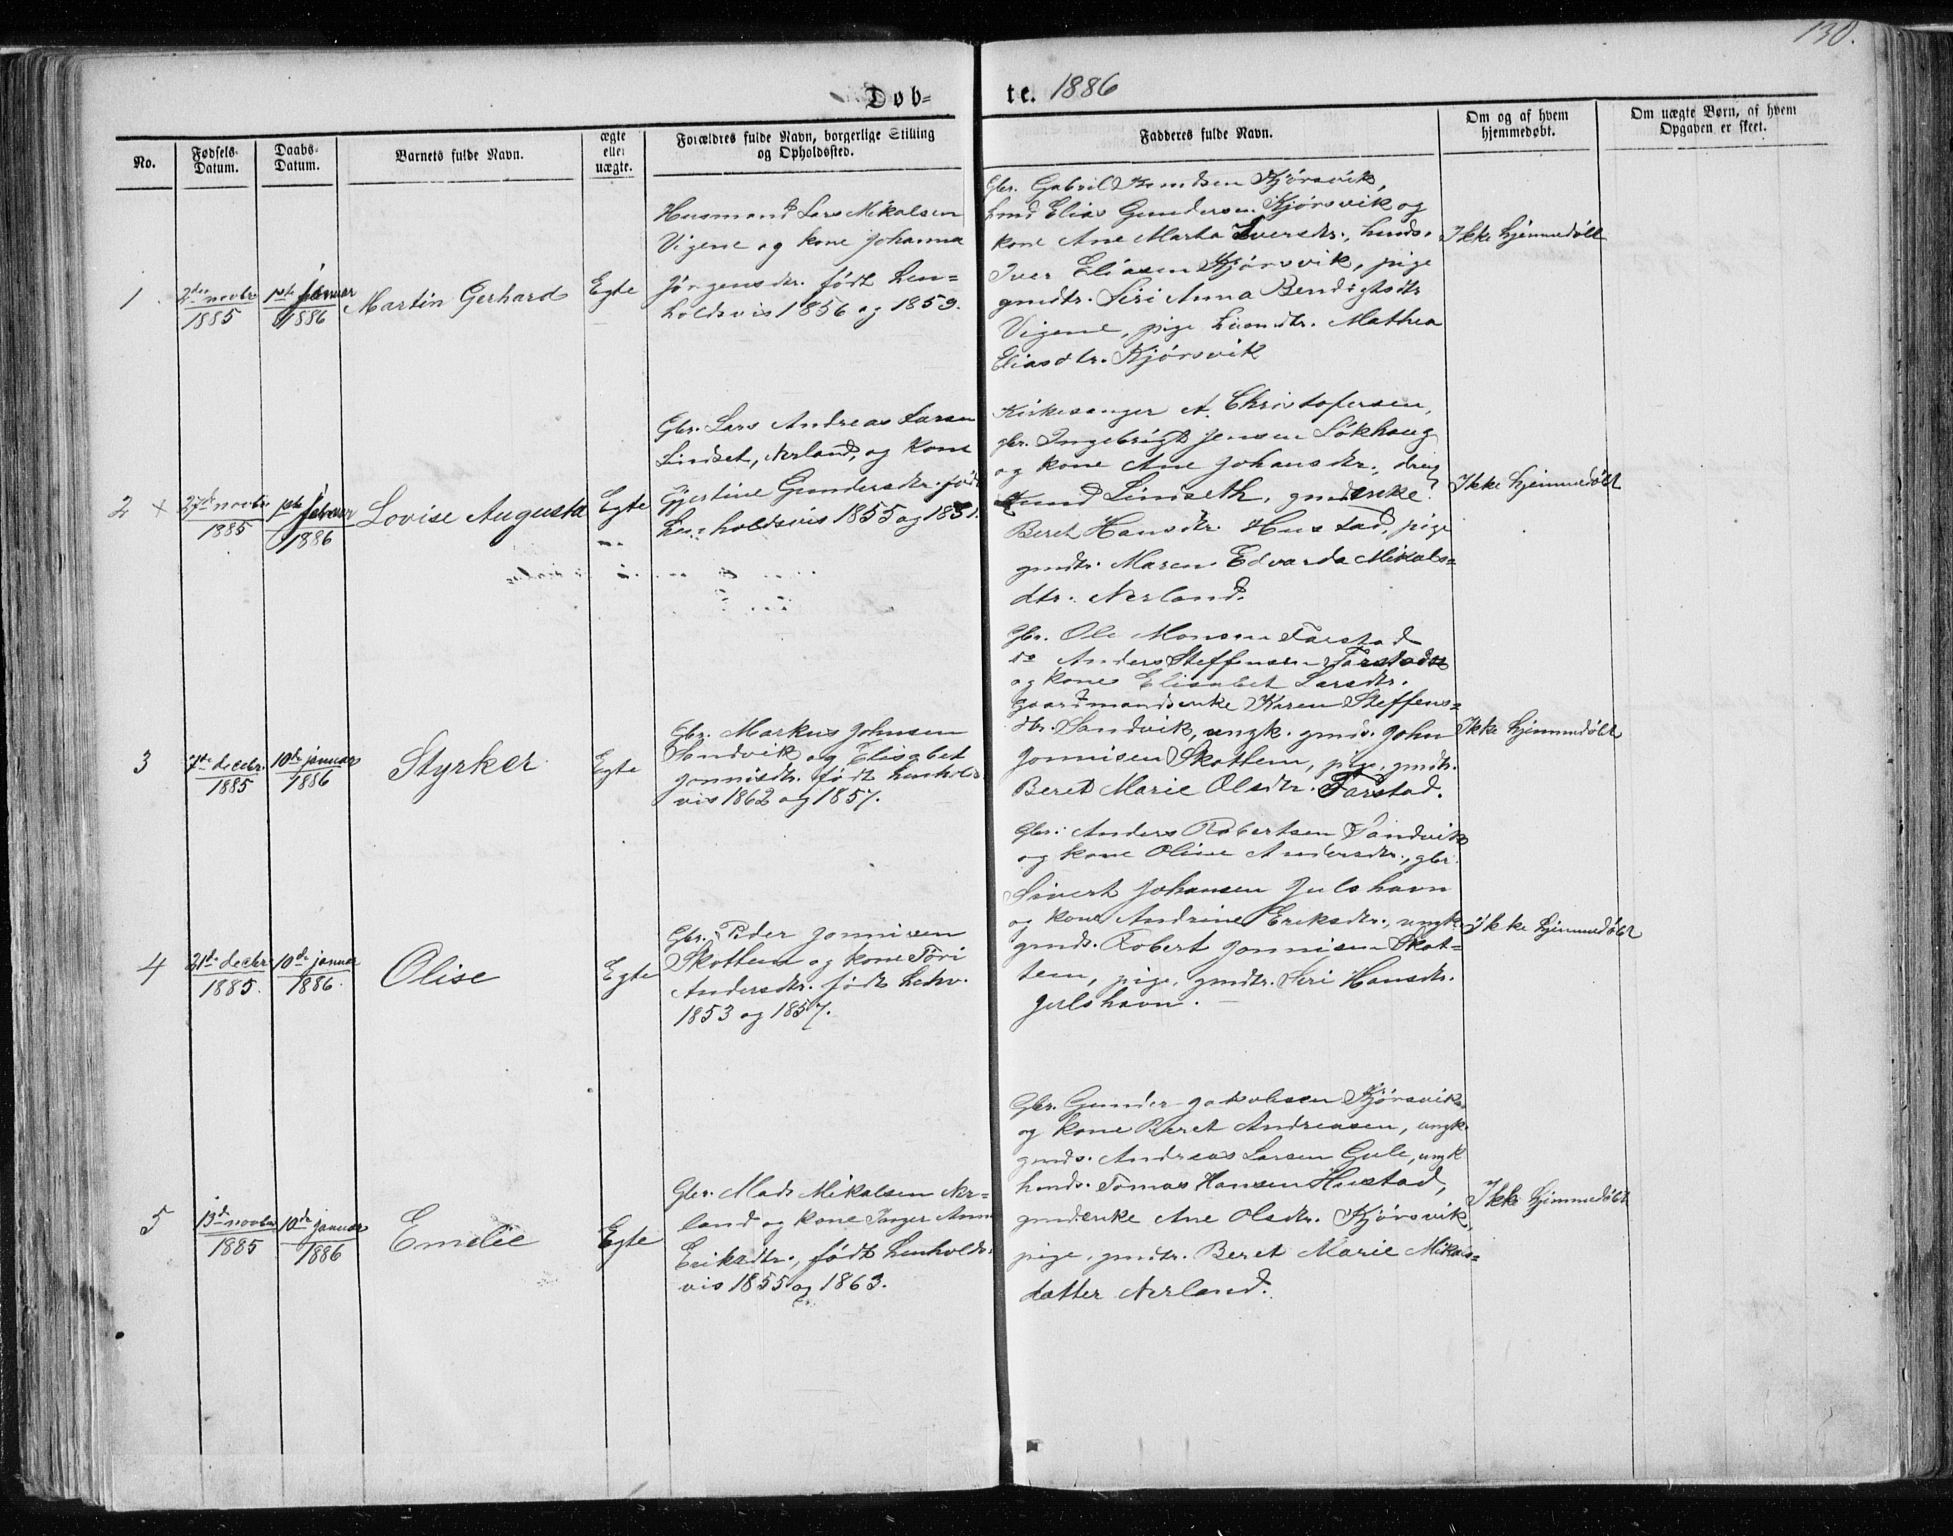 130.
Døb-
te. 1886
No.
Fødsels-
Datum.
Daabs-
Datum.
Barnets fulde Navn.
ægte
eller
uægte.
Forældres fulde Navn, borgerlige Stilling
og Opholdssted.
Fadderes fulde Navn.
Om og af hvem
hjemmedøbt.
Om uægte Børn, af hvem
Opgaven er skeet.
1
2den novbr
1885
1ste januar
1886
Martin Gerhard
Egte
Husmand Lars Mikalsen
Vigene og kone Johanna
Jørgensdtr. født hen-
holdsvis 1856 og 1859.
Gbr. Gabriel Knudsen Kjørsvik,
hmd Elias Gundersen Kjørsvik og
kone Ane Marta Iversdtr., hmds.
Iver Eliasen Kjørsvik, pige
gmdtr. Siri Anna Bendigtsdtr
Vigene, pige hmdtr. Mathea
Eliasdtr. Kjørsvik
Ikke hjemmedøbt
2 x
27de novbr
1885
1ste januar
1886
Lovise Augusta
Egte
Gbr. Lars Andreas Larsen
Lindset, Nerland, og kone
Gjertine Gundersdtr. født
henholdsvis 1855 og 1851.
Kirkesanger A. Christofersen,
gbr. Ingebrigt Jensen Løkhaug
og kone Ane Johansdtr., dreng
Knud Linseth, gmdenke
Beret Hansdtr. Hustad, pige
gmdtr. Maren Edvarda Mikals-
dtr. Nerland.
Ikke hjemmedøbt
3
7de decbr.
1885
10de januar
1886
Styrker
Egte
Gbr. Markus Johnsen
Sandvik og Elisabet
Jonnisdtr. født henholds
vis 1862 og 1857.
Gbr. Ole Monsen Farstad
do Anders Steffensen Farstad
og kone Elisabet Larsdtr.
gaardmandsenke Karen Steffens-
dtr. Sandvik, ungk. gmds. John
Jonnisen Skottem, pige, gmdtr.
Beret Marie Olsdtr. Farstad.
Ikke hjemmedøbt
4
21de decbr.
1885.
10de januar
1886.
Olise
Egte
Gbr. Peder Jonnisen
Skottem og kone Siri
Andersdtr. født hehv.
1853 og 1857.
Gbr. Anders Robertsen Sandvik
og kone Oline Andersdtr., gbr.
Sivert Johansen Julshavn
og kone Andrine Eriksdtr., ungk
gmds. Robert Jonnisen Skot-
tem, pige, gmdtr. Siri Hansdtr.
Julshavn.
Ikke hjemmedøbt
5
13de novbr
1885
10de januar
1886
Emelie
Egte
Gbr. Mads Mikalsen Ner-
land og kone Inger Anna
Eriksdtr., født henholds
vis 1855 og 1863.
Gbr. Gunder Jakobsen Kjørsvik
og kone Beret Andreasen, ungk.
gmds. Andreas Larsen Gule, ungk
hmds. Tomas Hansen Hustad,
gmdenke Ane Olsdtr. Kjørsvik,
pige, gmdtr. Beret Marie Mikals-
datter Nerland.
Ikke hjemmedøbt